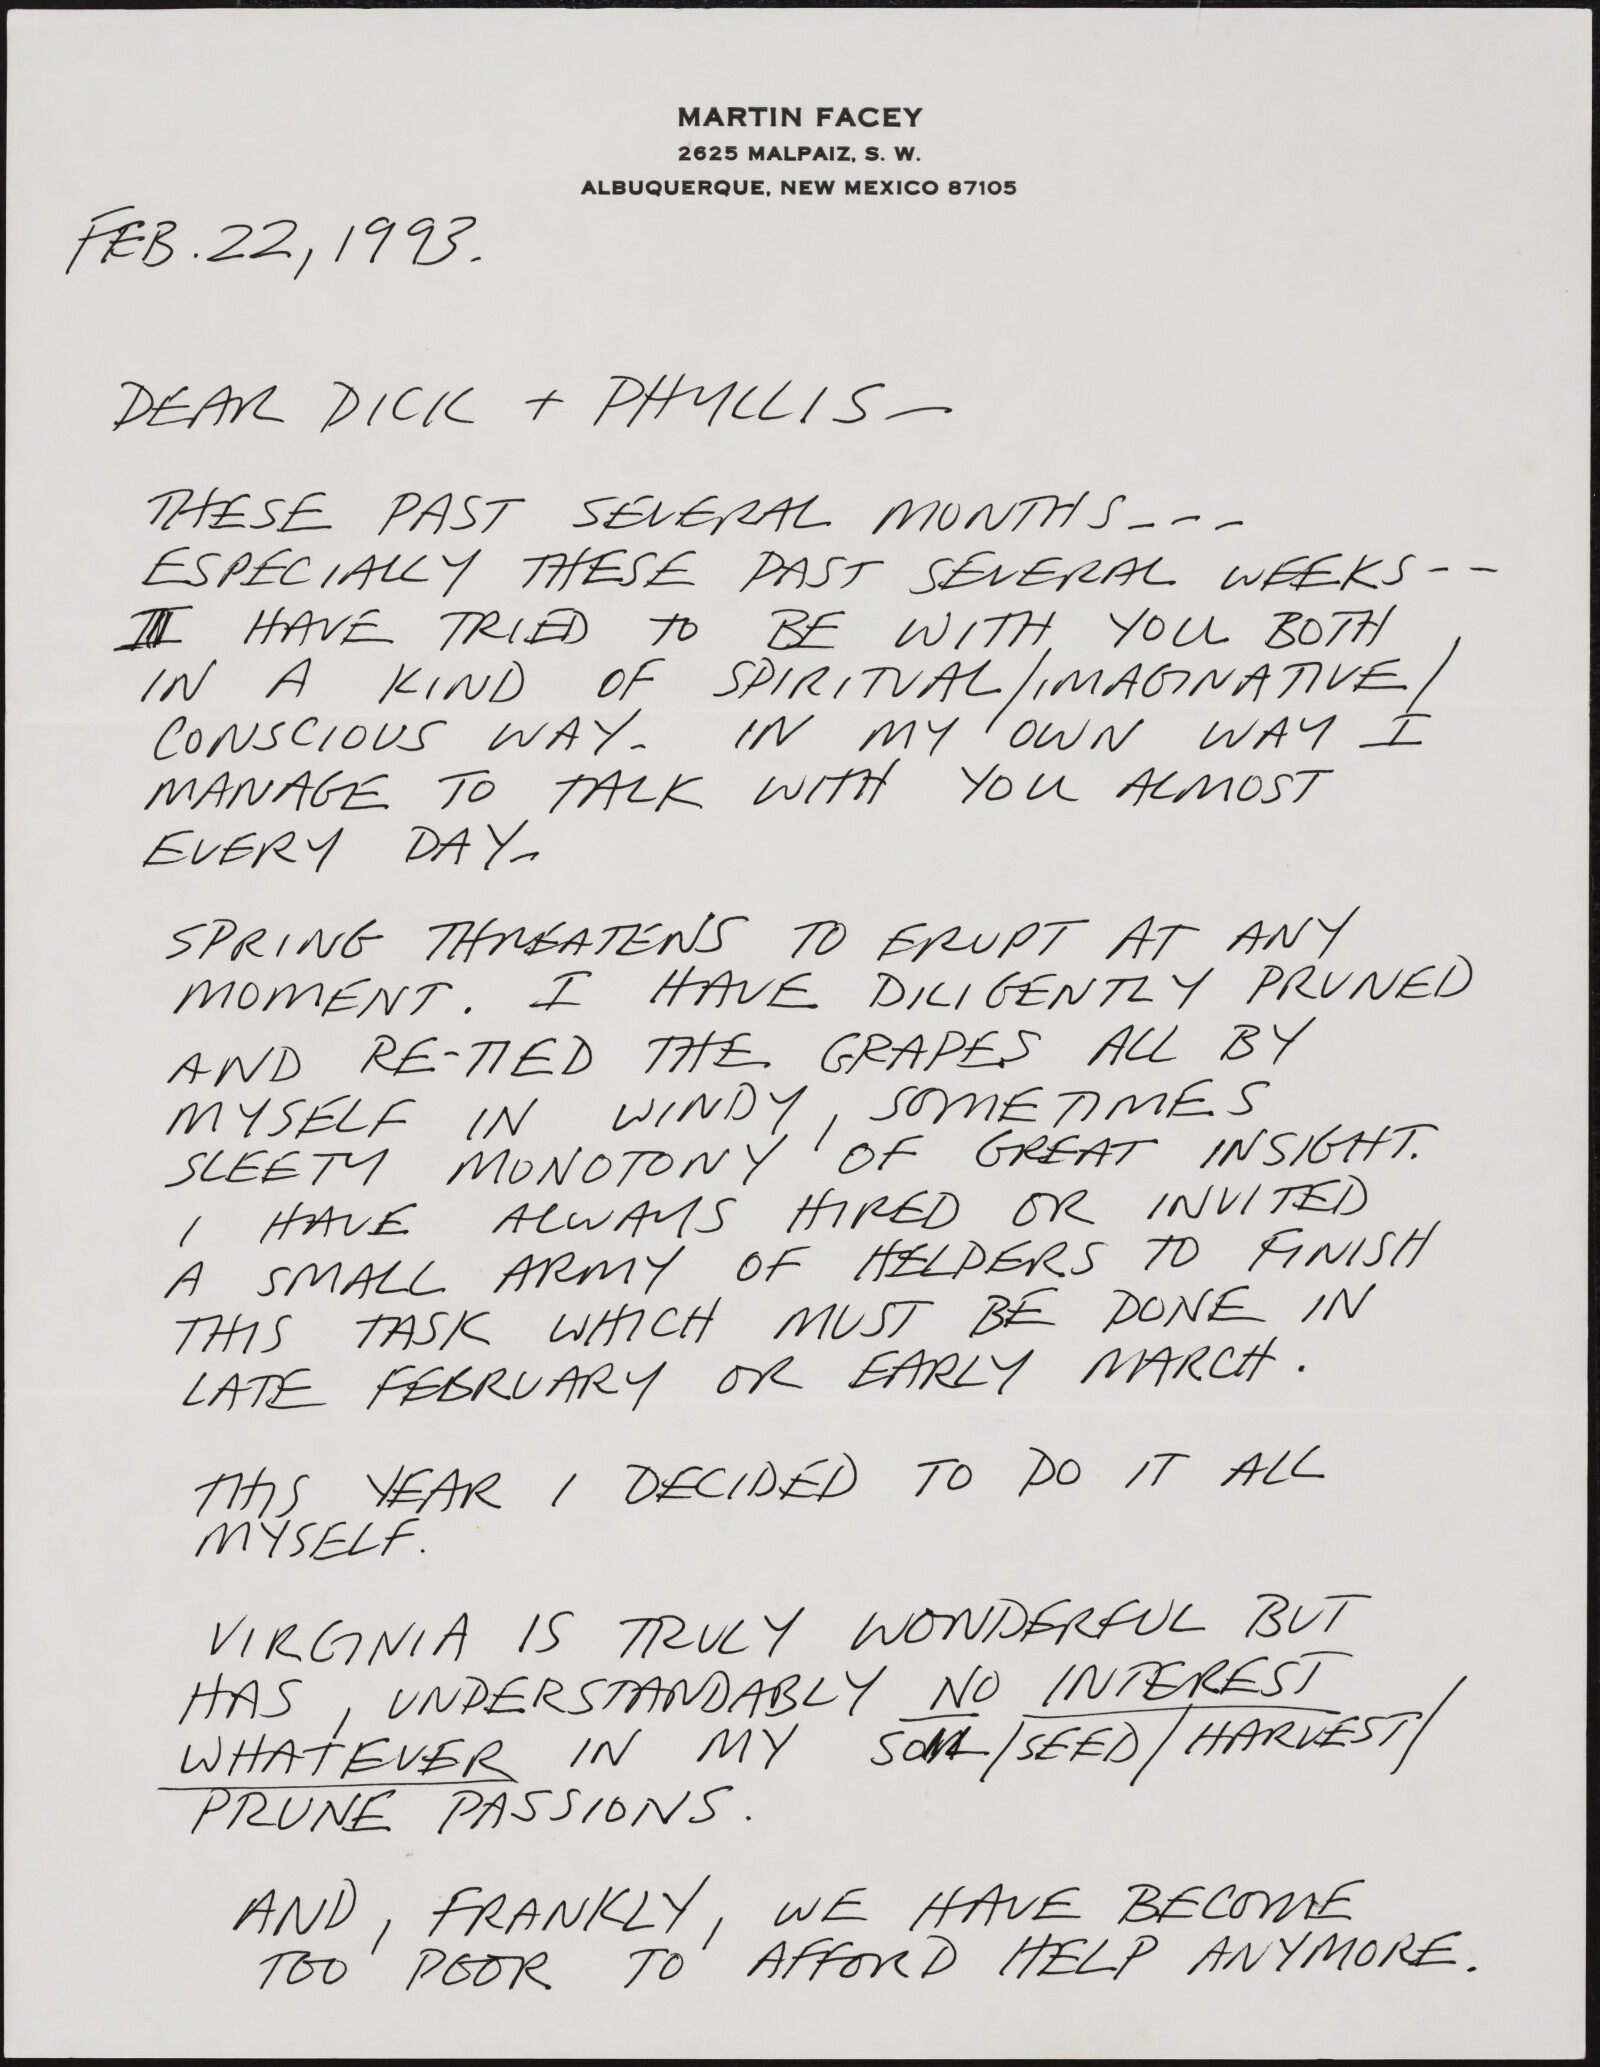 MARTIN FACEY
2625 MALPAIZ, S. W.
ALBUQUERQUE, NEW MEXICO 87105
FEB. 22, 1993.
DEAR DICK + PHYLLIS—
THESE PAST SEVERAL MONTHS---
ESPECIALLY THESE PAST SEVERAL WEEKS--
I HAVE TRIED TO BE WITH YOU BOTH,
IN A KIND OF SPIRITUAL/IMAGINATIVE/
CONSCIOUS WAY. IN MY OWN WAY I
MANAGE TO TALK WITH YOU ALMOST
EVERY DAY.
SPRING THREATENS TO ERUPT AT ANY
MOMENT. I HAVE DILIGENTLY PRUNED
AND RE-TIED THE GRAPES ALL BY
MYSELF IN WINDY, SOMETIMES
SLEETY MONOTONY OF GREAT INSIGHT.
I HAVE ALWAYS HIRED OR INVITED
A SMALL ARMY OF HELPERS TO FINISH
THIS TASK WHICH MUST BE DONE IN
LATE FEBRUARY OR EARLY MARCH.
THIS YEAR I DECIDED TO DO IT ALL
MYSELF.
VIRGINIA IS TRULY WONDERFUL BUT
HAS, UNDERSTANDABLY NO INTEREST
WHATEVER IN MY SOIL/SEED/HARVEST/
PRUNE PASSIONS.
AND, FRANKLY, WE HAVE BECOME
TOO POOR TO AFFORD HELP ANYMORE.